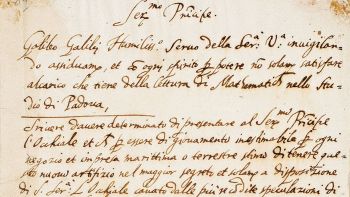 Ser.mo Principe.
Galileo Galilei Humiliss.o Servo della Ser.a V.a invigilan-
do assiduam.te, et cõ ogni spirito p potere nõ solam.te satisfare
alcarico che tiene della lettura di Mathematich nello Stu-
dio di Padova,
Scrivere davere determinato di presentare al Ser.mo Principe
l'Occhiale et p essere di giovamento inestimabile p ogni
negozio et impresa marittima o terrestre stimo di tenere que-
sto nuovo artifizio nel maggior segreto et solam.te a disposizione
di S. Ser.a L'Occhiale cavato dalle più recõdite speculazioni di